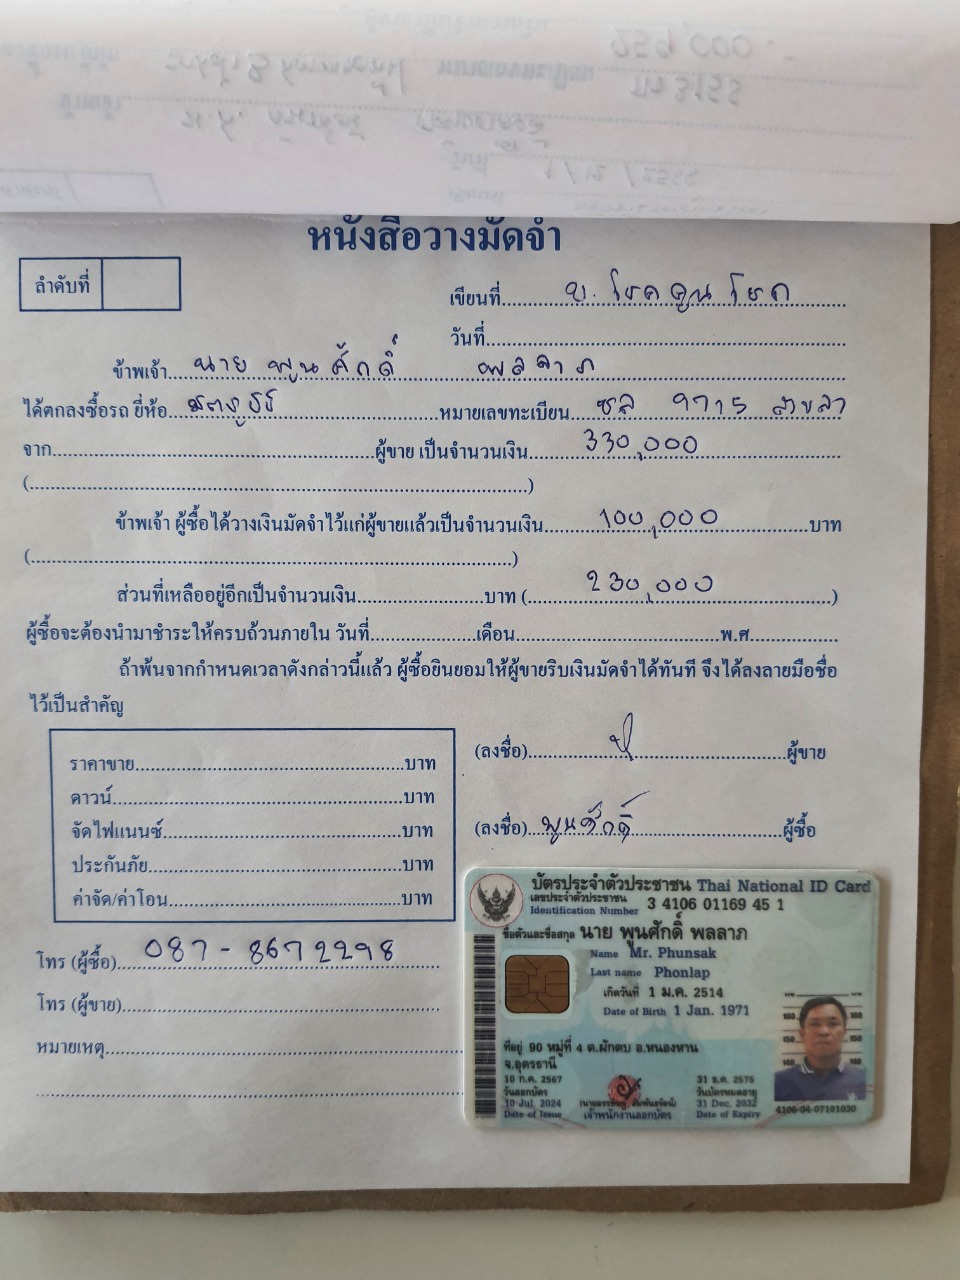 หนังสือวางมัดจำ
ลำดับที่
เขียนที่ บ. โชคคูนโชค
วันที่
ข้าพเจ้า นาย พูนศักดิ์ พลลาภ
ได้ตกลงซื้อรถ ยี่ห้อ หมายเลขทะเบียน 9715
จาก ผู้ขาย เป็นจำนวนเงิน 330,000
( )
ข้าพเจ้า ผู้ซื้อได้วางเงินมัดจำไว้แก่ผู้ขายแล้วเป็นจำนวนเงิน 100,000 บาท
( )
ส่วนที่เหลืออยู่อีกเป็นจำนวนเงิน บาท ( 230,000 )
ผู้ซื้อจะต้องนำมาชำระให้ครบถ้วนภายใน วันที่ เดือน พ.ศ.
ถ้าพ้นจากกำหนดเวลาดังกล่าวนี้แล้ว ผู้ซื้อยินยอมให้ผู้ขายริบเงินมัดจำได้ทันที จึงได้ลงลายมือชื่อ
ไว้เป็นสำคัญ
(ลงชื่อ) ผู้ขาย
(ลงชื่อ) พูนศักดิ์ ผู้ซื้อ
ราคาขาย บาท
ดาวน์ บาท
จัดไฟแนนซ์ บาท
ประกันภัย บาท
ค่าจัด/ค่าโอน บาท
โทร (ผู้ซื้อ) 087-8672298
โทร (ผู้ขาย)
หมายเหตุ
บัตรประจำตัวประชาชน Thai National ID Card
เลขประจำตัวประชาชน 3 4106 01169 45 1
Identification Number
ชื่อตัวและชื่อสกุล นาย พูนศักดิ์ พลลาภ
Name Mr. Phunsak
Last name Phonlap
เกิดวันที่ 1 ม.ค. 2514
Date of Birth 1 Jan. 1971
ที่อยู่ 90 หมู่ที่ 4 ต.ผักตบ อ.หนองหาน
จ.อุดรธานี
10 ก.ค. 2567
วันออกบัตร
10 Jul. 2024
Date of Issue
เจ้าพนักงานออกบัตร
31 ธ.ค. 2575
วันบัตรหมดอายุ
31 Dec. 2032
Date of Expiry
4106-04-07101030